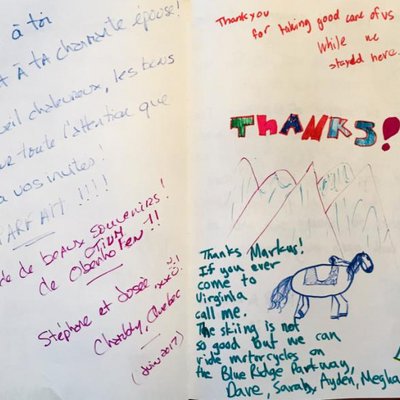 à toi
À TA charmante épouse!
chaleureux, les bons
toute l'attention que
à vos invités!
PARFAIT!!!!
de beaux souvenirs!
de Oberhofen!!
Stéphane et Josée xoxo!
Québec
(Juin 2017)
Thank you
for taking good care of us
while we
stayed here.
THANKS!
Thanks Markus!
If you ever
come to
Virginia
call me.
The skiing is not
so good but we can
ride motorcycles on
the Blue Ridge Parkway,
Dave, Sarah, Ayden, Megha